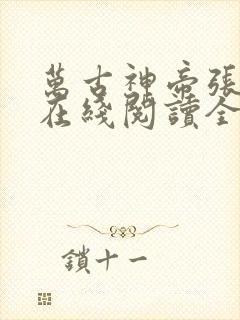 萬古神帝張
在綫閱讀全
鎖十一